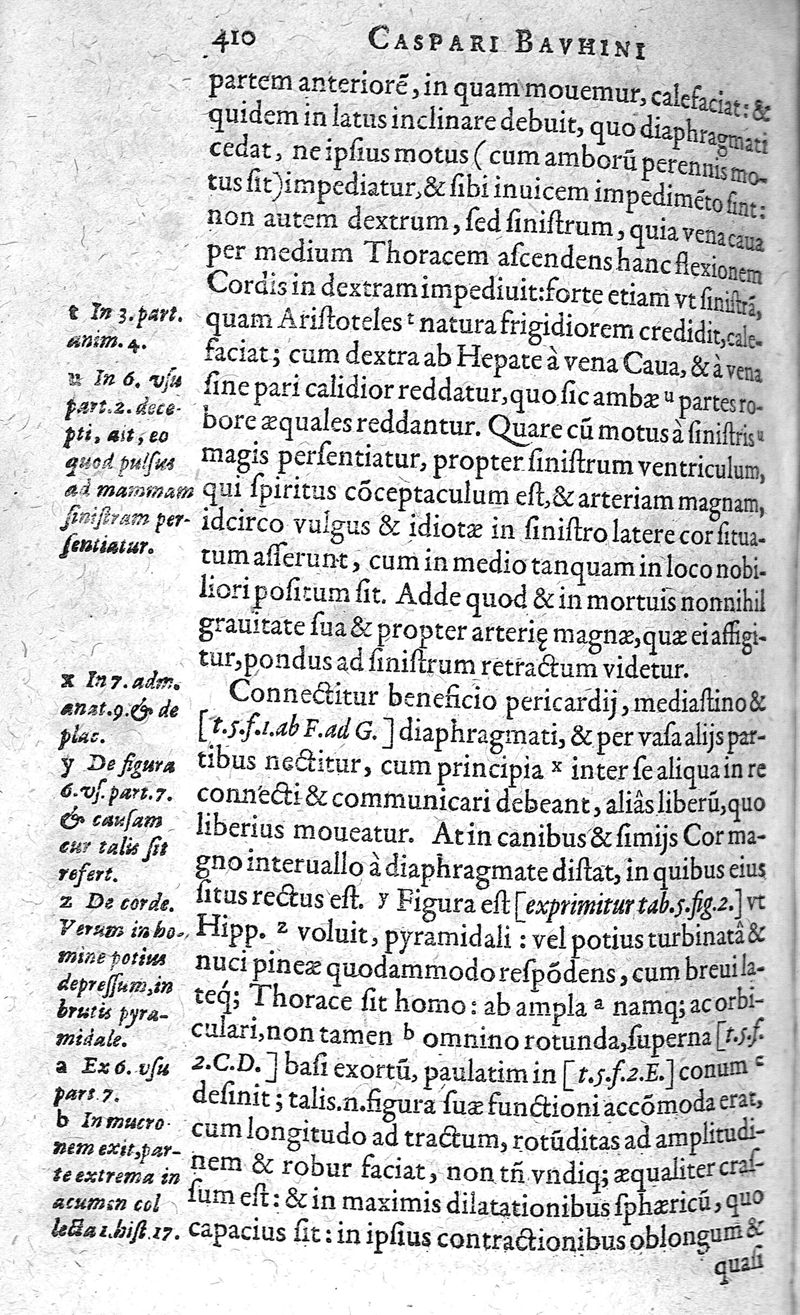 410 CASPARI BAVHINI
partem anteriorē, in quam mouemur, calefaciat: &
quidem in latus inclinare debuit, quo diaphragmati
cedat, ne ipſius motus ( cum amborū perennis mo-
tus ſit) impediatur, & ſibi inuicem impedimēto ſint:
non autem dextrum, ſed ſiniſtrum, quia vena caua
per medium Thoracem aſcendens hanc flexionem
Cordis in dextram impediuit: forte etiam vt ſiniſtrā,
quam Ariſtoteles t natura frigidiorem credidit, cale-
faciat; cum dextra ab Hepate à vena Caua, & à vena
ſine pari calidior reddatur, quo ſic ambæ u partes ro-
bore æquales reddantur. Quare cū motus à ſiniſtris u
magis perſentiatur, propter ſiniſtrum ventriculum,
qui ſpiritus cōceptaculum eſt, & arteriam magnam,
idcirco vulgus & idiotæ in ſiniſtro latere cor ſitua-
tum aſſerunt, cum in medio tanquam in loco nobi-
liori poſitum ſit. Adde quod & in mortuis nonnihil
grauitate ſua & propter arterię magnæ, quæ ei affigi-
tur, pondus ad ſiniſtrum retractum videtur.
Connectitur beneficio pericardij, mediaſtino &
[t.5.f.1.ab F.ad G.] diaphragmati, & per vaſa alijs par-
tibus nectitur, cum principia x inter ſe aliqua in re
connecti & communicari debeant, aliâs liberū, quo
liberius moueatur. At in canibus & ſimijs Cor ma-
gno interuallo à diaphragmate diſtat, in quibus eius
ſitus rectus eſt. y Figura eſt [exprimitur tab.5.fig.2.] vt
Hipp. z voluit, pyramidali : vel potius turbinatâ &
nuci pineæ quodammodo reſpōdens, cum breui la-
teq́; Thorace ſit homo: ab ampla a namq; ac orbi-
culari, non tamen b omnino rotunda, ſuperna [t.5.f.
2.C.D.] baſi exortū, paulatim in [t.5.f.2.E.] conum c
deſinit; talis.n.figura ſuæ functioni accōmoda erat,
cum longitudo ad tractum, rotūditas ad amplitudi-
nem & robur faciat, non tñ vndiq; æqualiter craſ-
ſum eſt: & in maximis dilatationibus ſphæricū, quo
capacius ſit: in ipſius contractionibus oblongum &
quaſi
t In 3. part.
anim. 4.
u In 6. vſu
part.2. dece-
pti, ait, eo
quod pulſus
ad mammam
ſiniſtram per-
ſentiatur.
x In 7. adm.
anat.9.& de
plac.
y De figura
6.vſ.part.7.
& cauſam
cur talis ſit
refert.
z De corde.
Verum in ho-
mine potius
depreſſum, in
brutis pyra-
midale.
a Ex 6. vſu
part 7.
b In mucro-
nem exit, par-
te extrema in
acumen col
lecta 1.hiſt.17.